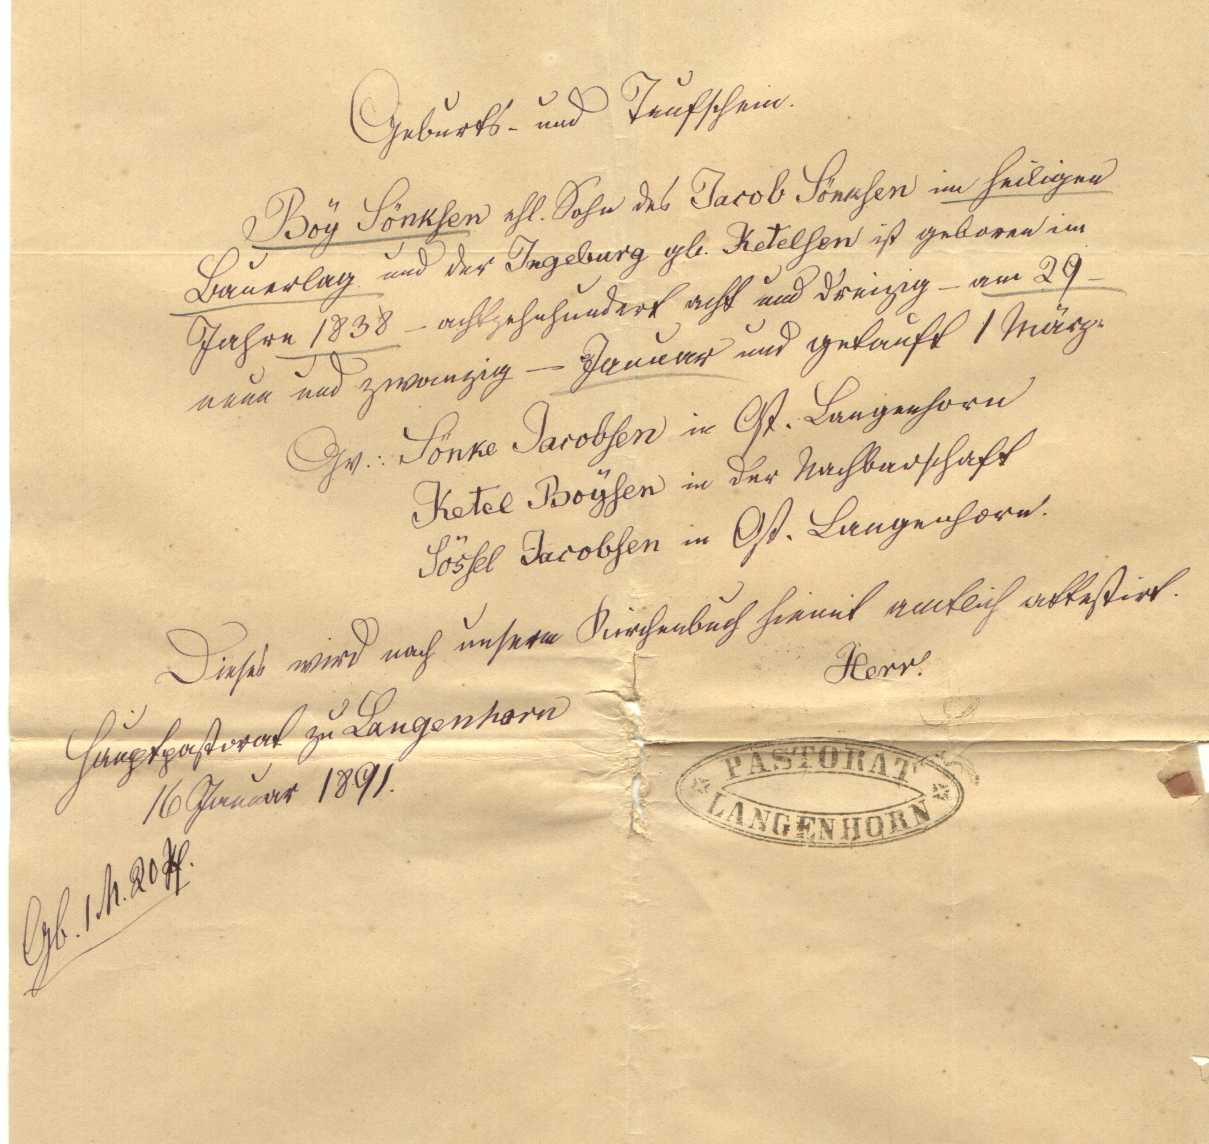 Geburts- und Taufschein.
Boÿ Sönksen ehl. Sohn des Jacob Sönksen im heiligen
Bauerlag und der Ingeburg gb. Ketelsen ist geboren im
Jahre 1838 – achtzehnhundert acht und dreizig – am 29 –
neun und zwanzig – Januar und getauft 1 März.
Gv.: Sönke Jacobsen in Ost. Langenhorn
Ketel Boÿsen in der Nachbarschaft
Sössel Jacobsen in Ost. Langenhorn.
Dieses wird nach unserm Kirchenbuch hiemit amtlich attestirt.
Herr.
Hauptpastorat zu Langenhorn
16 Januar 1891.
PASTORAT
LANGENHORN
Gb. 1 M. 20 Pf.